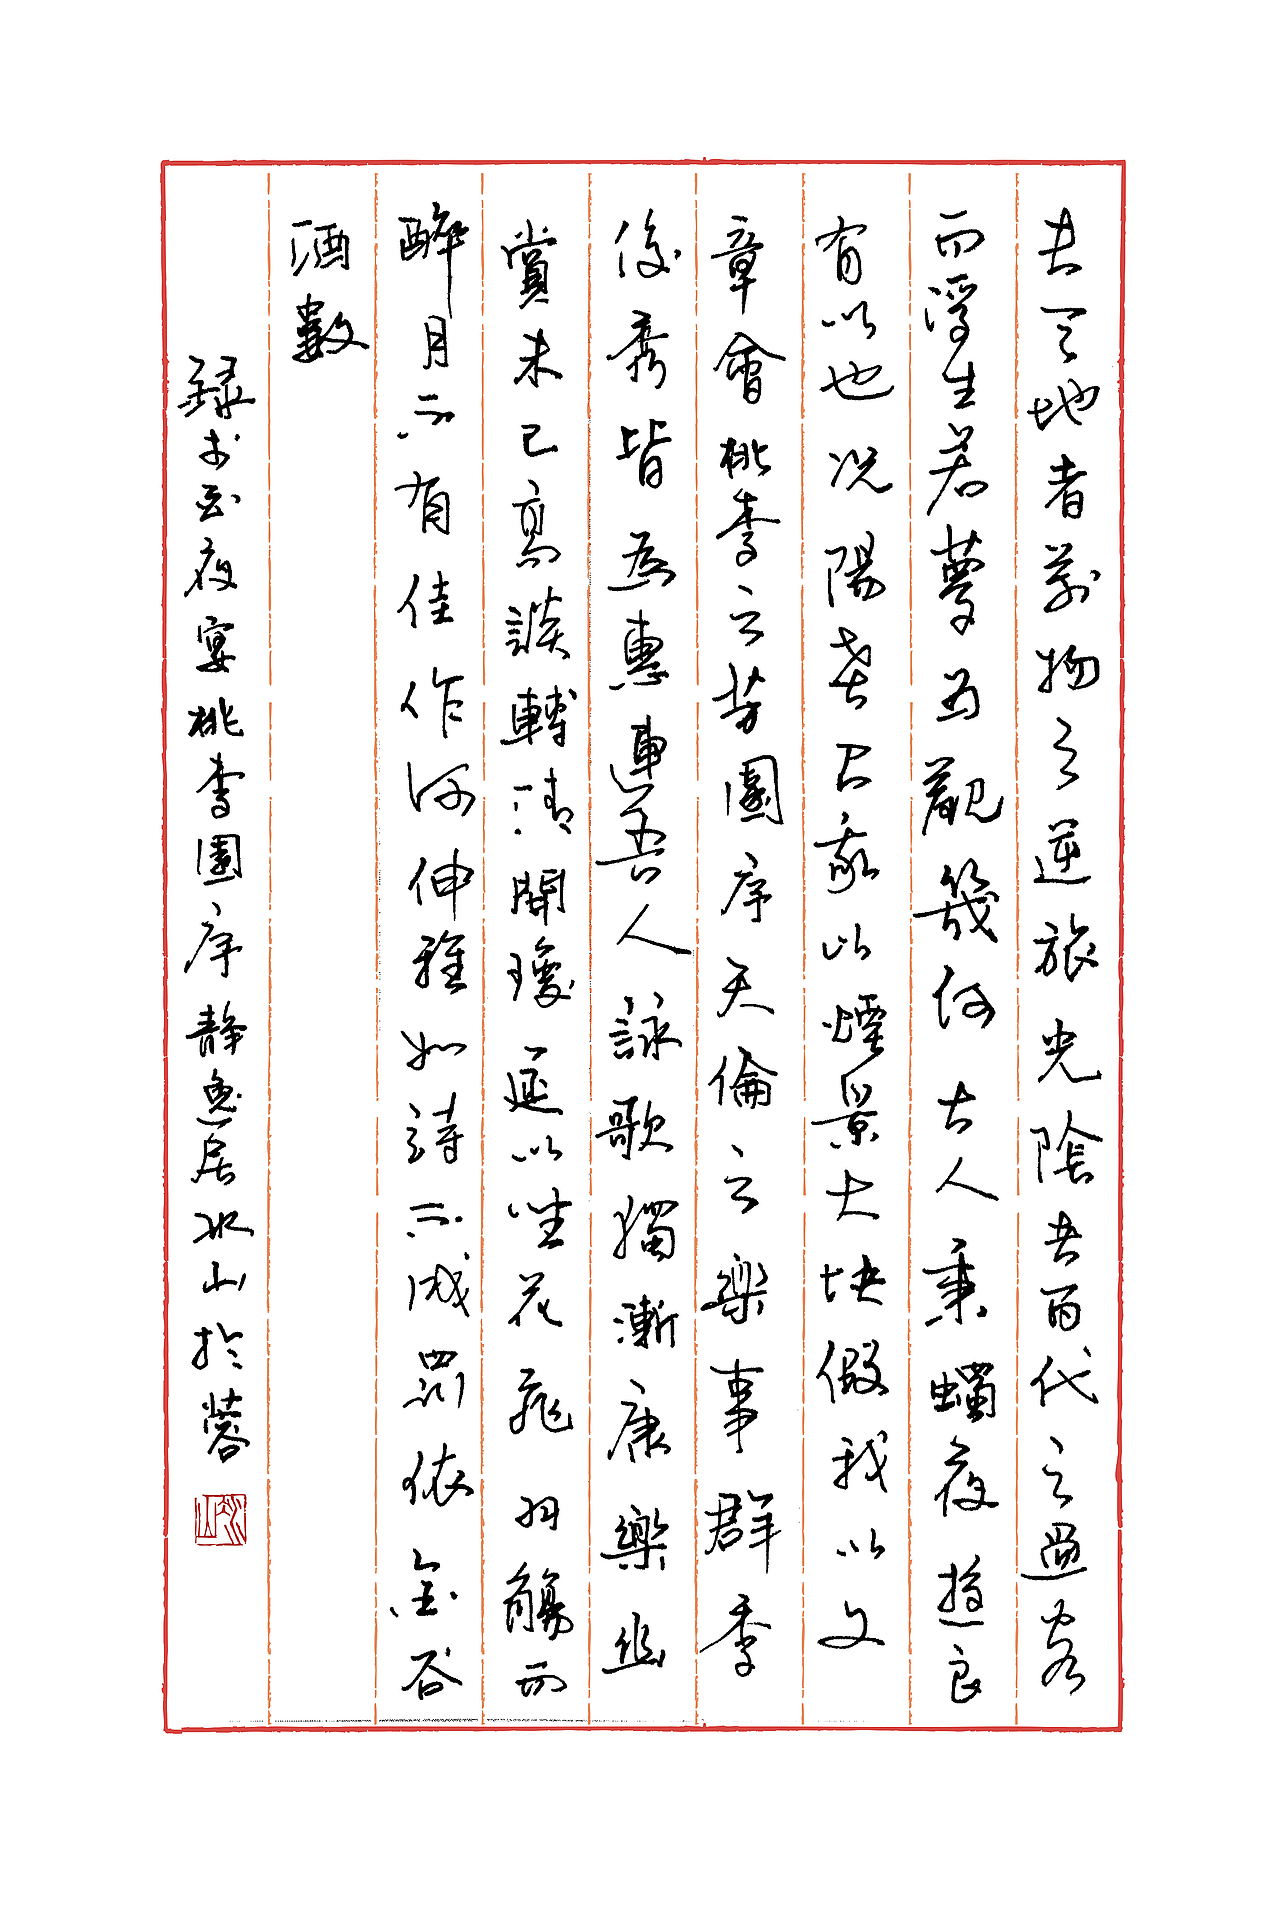 夫天地者萬物之逆旅光陰者百代之過客
而浮生若夢為觀幾何古人秉燭夜遊良
有以也況陽春召我以煙景大块假我以文
章會桃李之芳園序天倫之樂事群季
俊秀皆為惠連吾人詠歌獨漸康樂幽
賞未已高談轉清開瓊筵以坐花飛羽觴而
醉月不有佳作何伸雅如詩不成罰依金谷
酒數
録夜宴桃李園序静逸居冰山於蓉
冰山